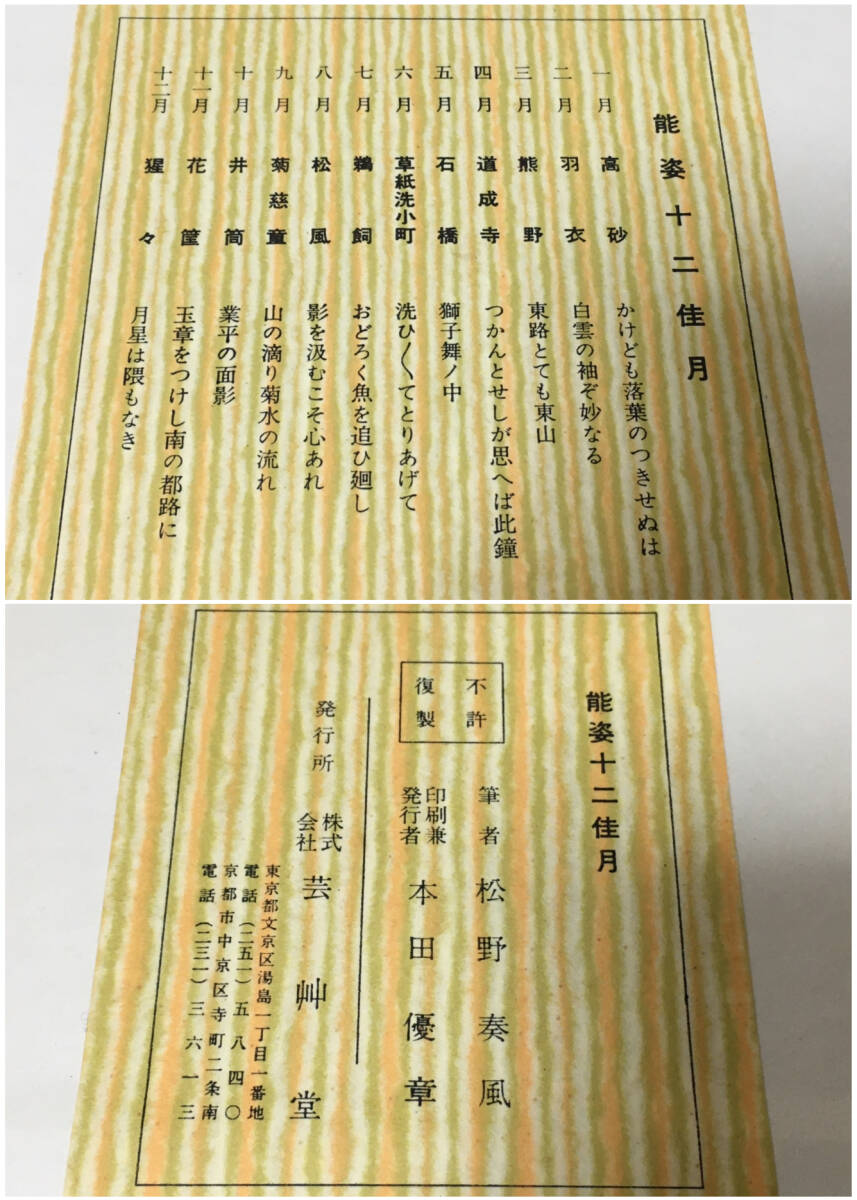 能姿十二佳月
一月 高砂 かけども落葉のつきせぬは
二月 羽衣 白雲の袖ぞ妙なる
三月 熊野 東路とても東山
四月 道成寺 つかんとせしが思へば此鐘
五月 石橋 獅子舞ノ中
六月 草紙洗小町 洗ひ〱てとりあげて
七月 鵜飼 おどろく魚を追ひ廻し
八月 松風 影を汲むこそ心あれ
九月 菊慈童 山の滴り菊水の流れ
十月 井筒 業平の面影
十一月 花筐 玉章をつけし南の都路に
十二月 猩々 月星は隈もなき
能姿十二佳月
不許
復製
筆者 松野奏風
印刷兼
発行者 本田優章
発行所 株式
会社 芸艸堂
東京都文京区湯島一丁目一番地
電話(二五一)五八四〇
京都市中京区寺町二条南
電話(二三一)三六一三